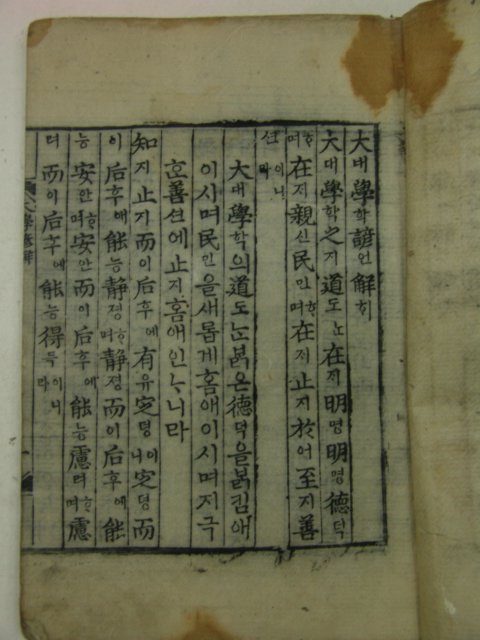 大대學학諺언解ᄒᆡ
大대學학之지道도ᄂᆞᆫ在ᄌᆡ明명明명德덕
ᄒᆞ며在ᄌᆡ親신民민ᄒᆞ며在ᄌᆡ止지於어至지善
션이니라
大대學학의道도ᄂᆞᆫᄇᆞᆯ근德덕을ᄇᆞᆯ킴애
이시며民민을새롭게홈애이시며지극
ᄒᆞᆫ善션에止지홈애인ᄂᆞ니라
知지止지而이后후에有유定뎡이니定뎡而
이后후에能능靜졍ᄒᆞ며靜졍而이后후에能
능安안ᄒᆞ며安안而이后후에能능慮려ᄒᆞ며慮
려而이后후에能능得득이니라
大學諺解